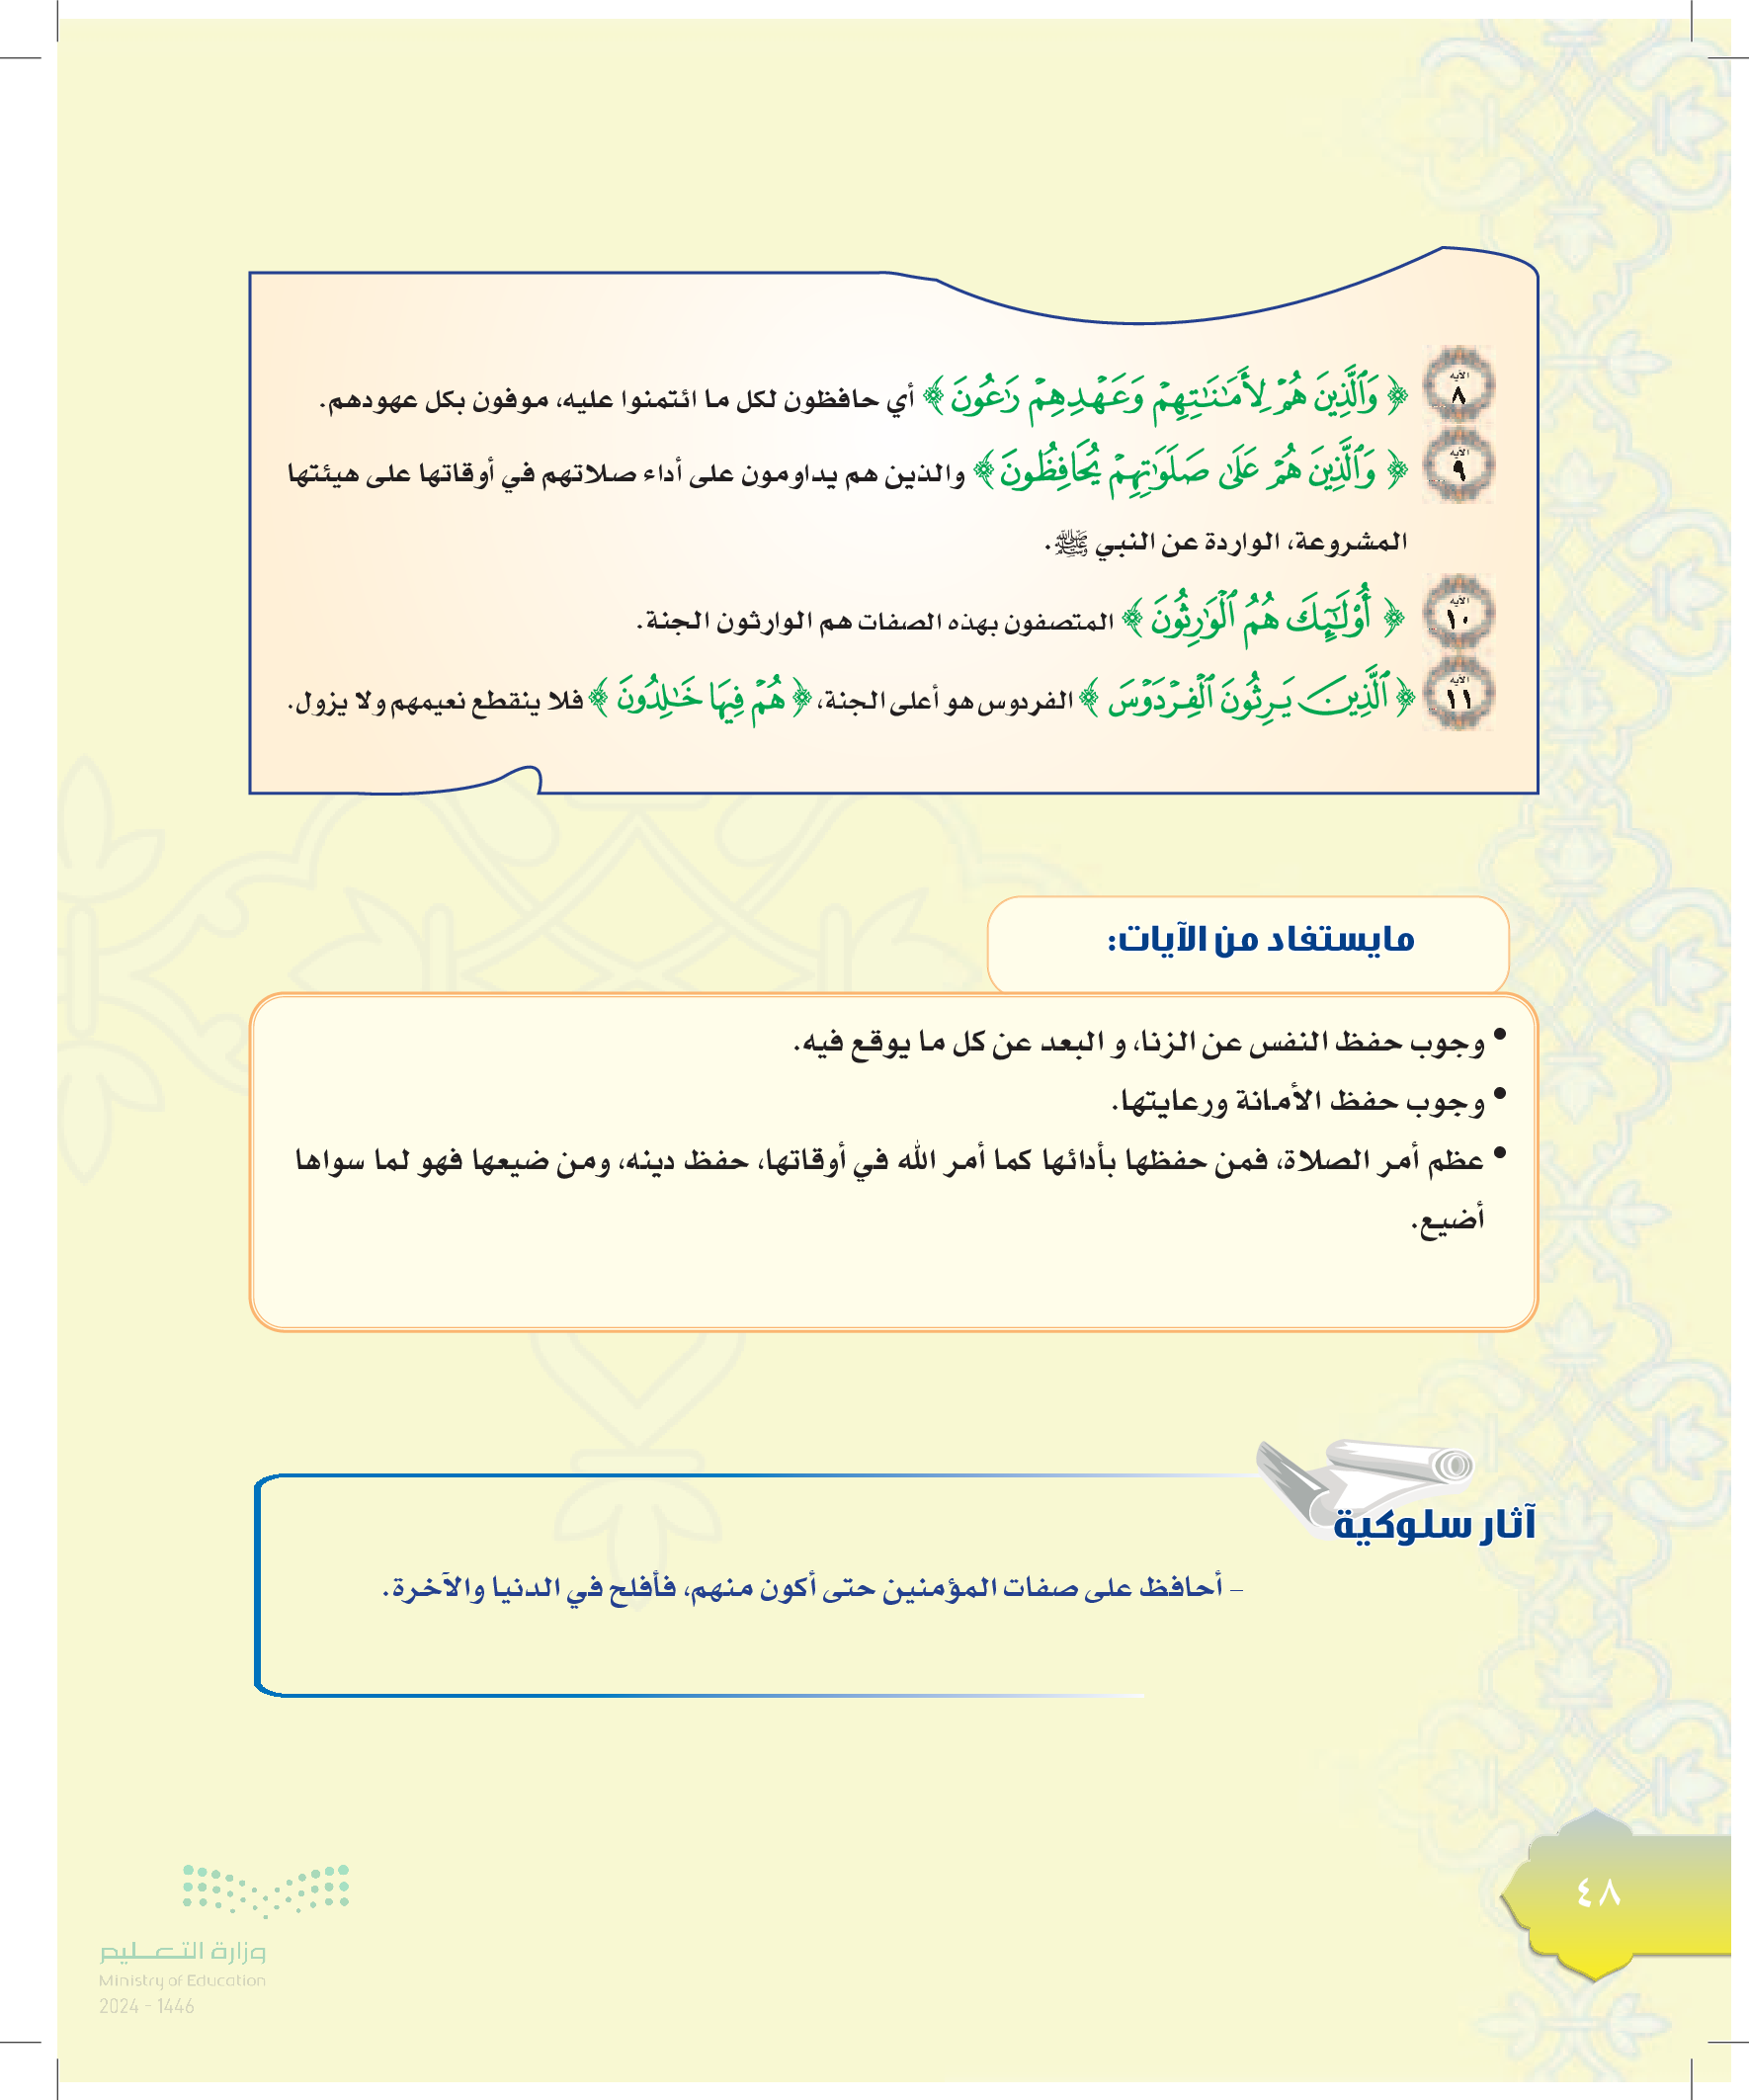 الآية ٨ ﴿ وَٱلَّذِينَ هُمْ لِأَمَـٰنَـٰتِهِمْ وَعَهْدِهِمْ رَٰعُونَ ﴾ أي حافظون لكل ما ائتمنوا عليه، موفون بكل عهودهم.
الآية ٩ ﴿ وَٱلَّذِينَ هُمْ عَلَىٰ صَلَوَٰتِهِمْ يُحَافِظُونَ ﴾ والذين هم يداومون على أداء صلاتهم في أوقاتها على هيئتها
المشروعة، الواردة عن النبي ﷺ.
الآية ١٠ ﴿ أُوْلَـٰٓئِكَ هُمُ ٱلْوَٰرِثُونَ ﴾ المتصفون بهذه الصفات هم الوارثون الجنة.
الآية ١١ ﴿ ٱلَّذِينَ يَرِثُونَ ٱلْفِرْدَوْسَ ﴾ الفردوس هو أعلى الجنة، ﴿ هُمْ فِيهَا خَـٰلِدُونَ ﴾ فلا ينقطع نعيمهم ولا يزول.
مايستفاد من الآيات:
• وجوب حفظ النفس عن الزنا، و البعد عن كل ما يوقع فيه.
• وجوب حفظ الأمانة ورعايتها.
• عظم أمر الصلاة، فمن حفظها بأدائها كما أمر الله في أوقاتها، حفظ دينه، ومن ضيعها فهو لما سواها
أضيع.
آثار سلوكية
– أحافظ على صفات المؤمنين حتى أكون منهم، فأفلح في الدنيا والآخرة.
٤٨
وزارة التعليم
Ministry of Education
2024 - 1446